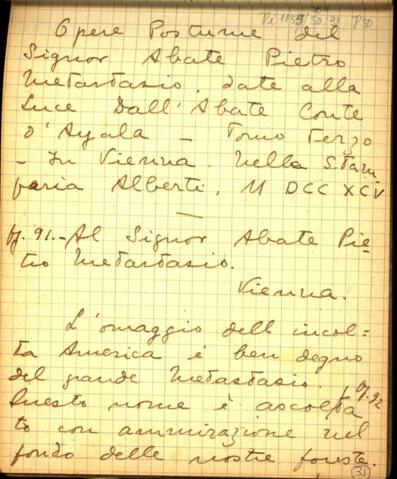 Opere Postume del
Signor Abate Pietro
Metastasio, date alla
Luce Dall'Abate Conte
D'Ayala - Tomo Terzo
- In Vienna. Nella Stam
paria Alberti, M DCC XCV
pg. 91. - Al Signor Abate Pie-
tro Metastasio.
Vienna.
L'omaggio dell'incol-
ta America è ben degno
del grande Metastasio. / pg. 92
Questo nome è ascolta
to con ammirazione nel
fondo delle nostre foreste.